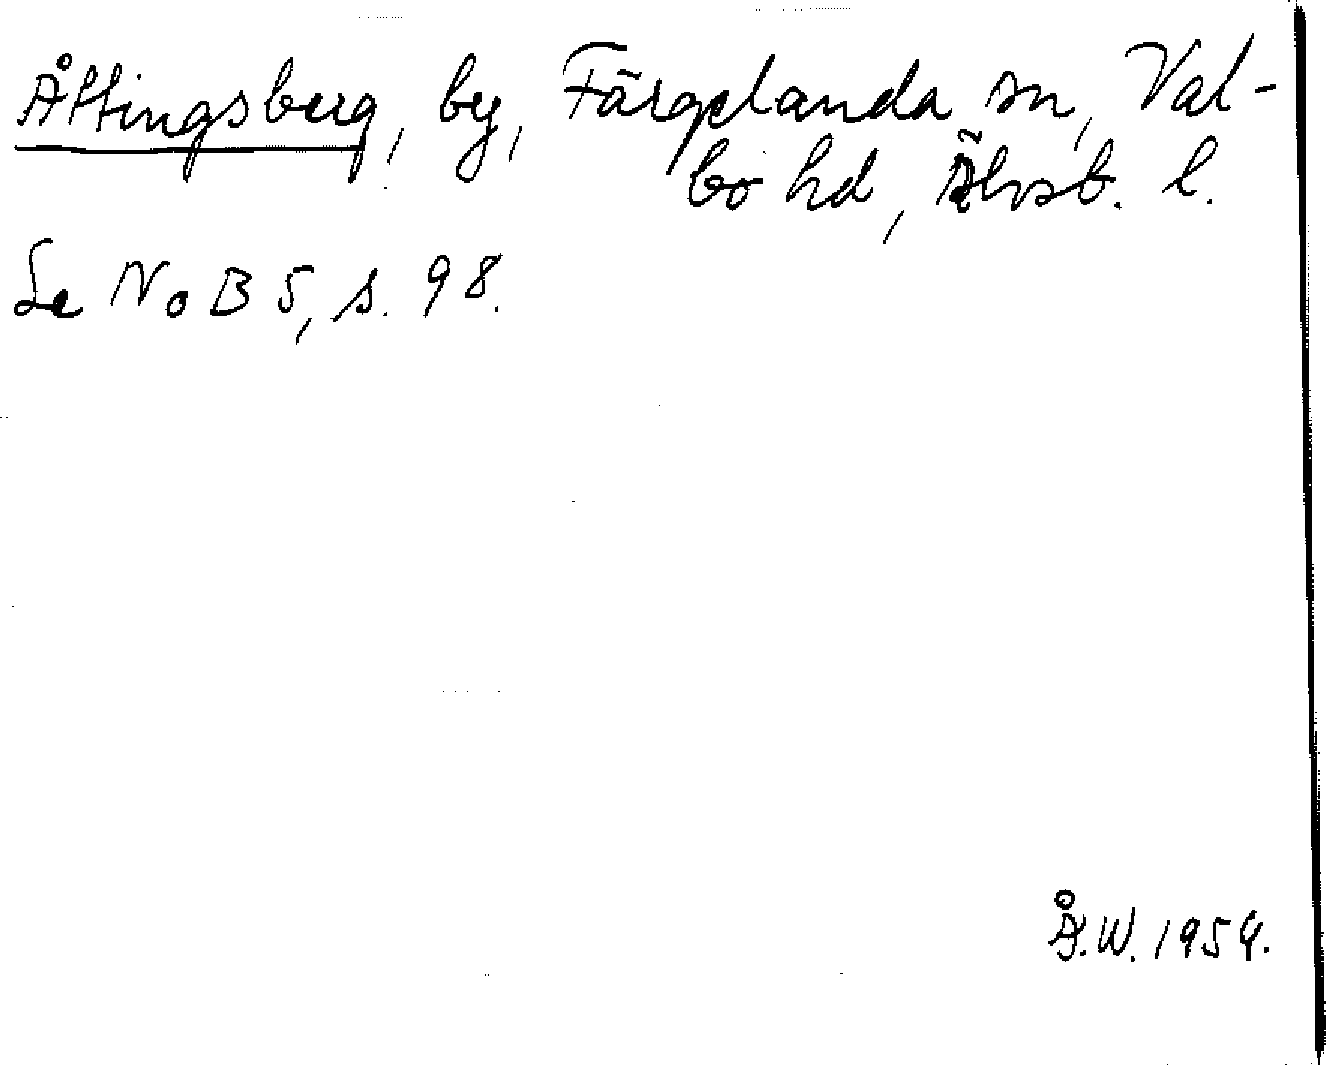 Åttingsberg, by, Färgelanda sn, Val-
bo hd, Älvsb. l.
Se NoB 5, s. 98.
Å.W. 1954.